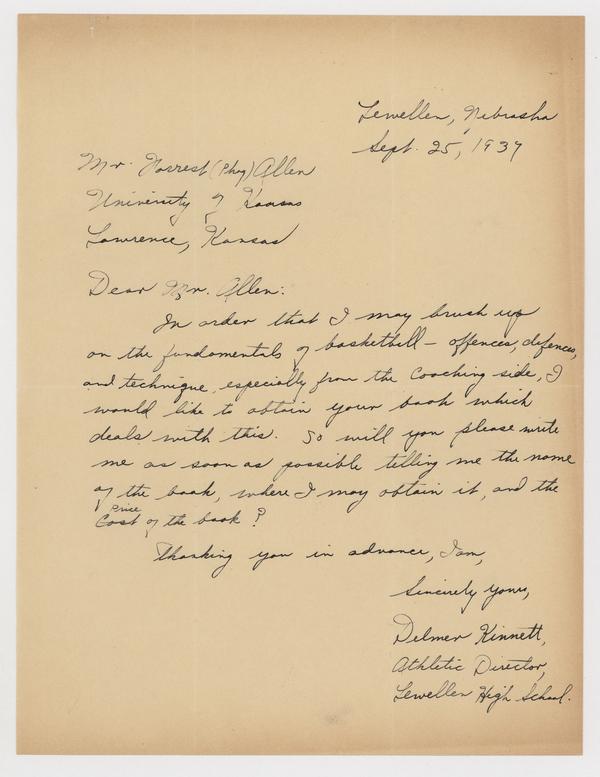 Lewellen, Nebraska
Sept. 25, 1937
Mr. Forrest (Phog) Allen
University of Kansas
Lawrence, Kansas
Dear Mr. Allen:
In order that I may brush up
on the fundamentals of basketball - offences, defences,
and technique, especially from the coaching side, I
would like to obtain your book which
deals with this. So will you please write
me as soon as possible telling me the name
of the book, where I may obtain it, and the
Price
Cost of the book?
Thanking you in advance, I am,
Sincerely yours,
Delmer Kinnett,
Athletic Director,
Lewellen High School.